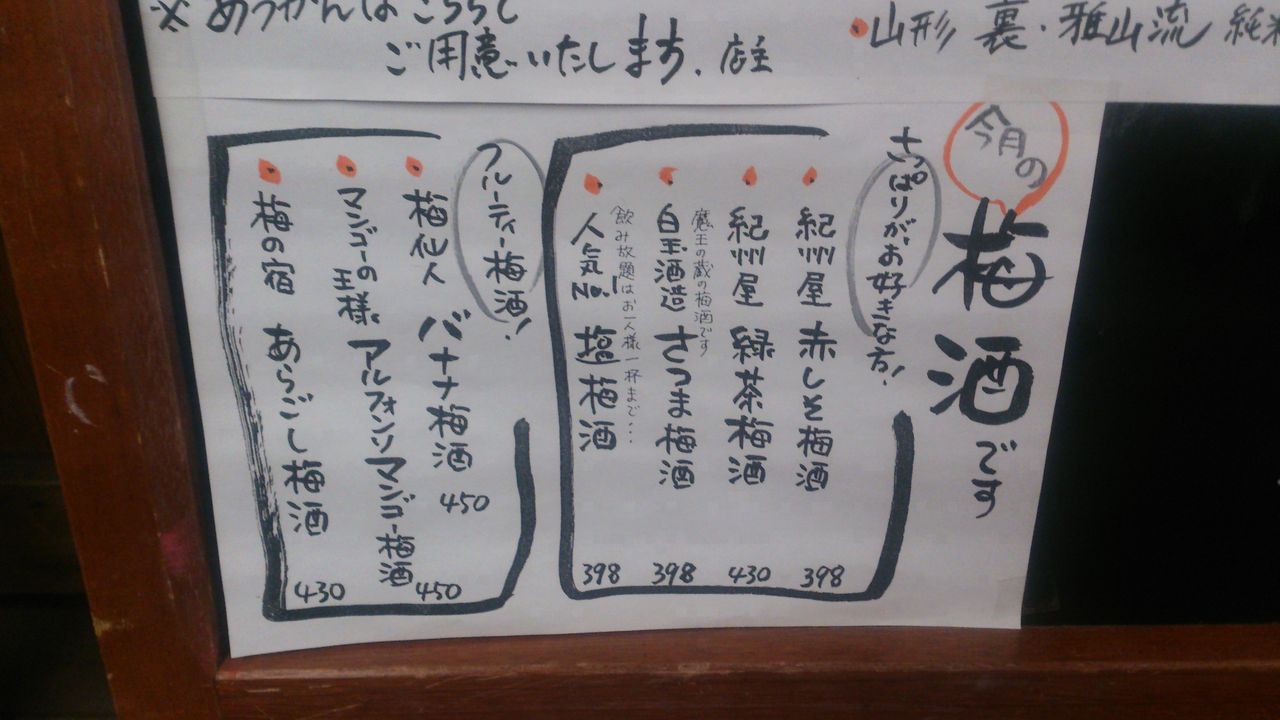 ※あつかんはこちらで
ご用意いたします、店主
山形 裏・雅山流 純米
今月の
梅酒です
さっぱりがお好きな方!
紀州屋 赤しそ梅酒 398
紀州屋 緑茶梅酒 430
魔王の蔵の梅酒です
白玉酒造 さつま梅酒 398
飲み放題はお一人様一杯まで…
人気No.1 塩梅酒 398
フルーティー梅酒!
梅仙人 バナナ梅酒 450
マンゴーの王様 アルフォンソマンゴー梅酒 450
梅の宿 あらごし梅酒 430